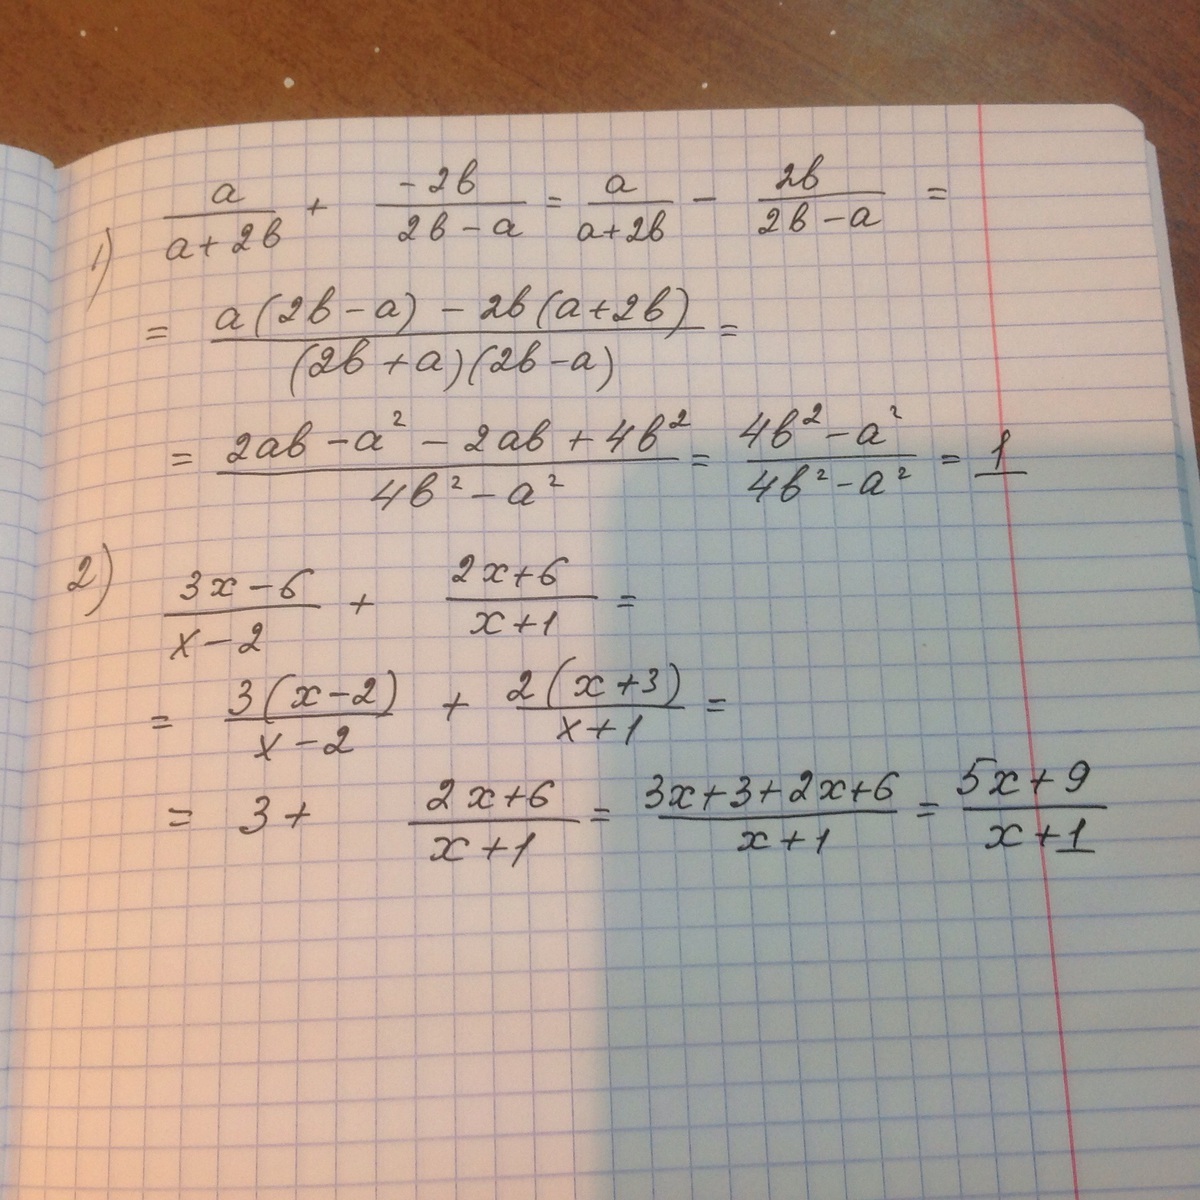 1) a/(a+2b) + -2b/(2b-a) = a/(a+2b) - 2b/(2b-a) =
= (a(2b-a) - 2b(a+2b))/((2b+a)(2b-a)) =
= (2ab-a²-2ab+4b²)/(4b²-a²) = (4b²-a²)/(4b²-a²) = 1
2) (3x-6)/(x-2) + (2x+6)/(x+1) =
= 3(x-2)/(x-2) + 2(x+3)/(x+1) =
= 3+ (2x+6)/(x+1) = (3x+3+2x+6)/(x+1) = (5x+9)/(x+1)